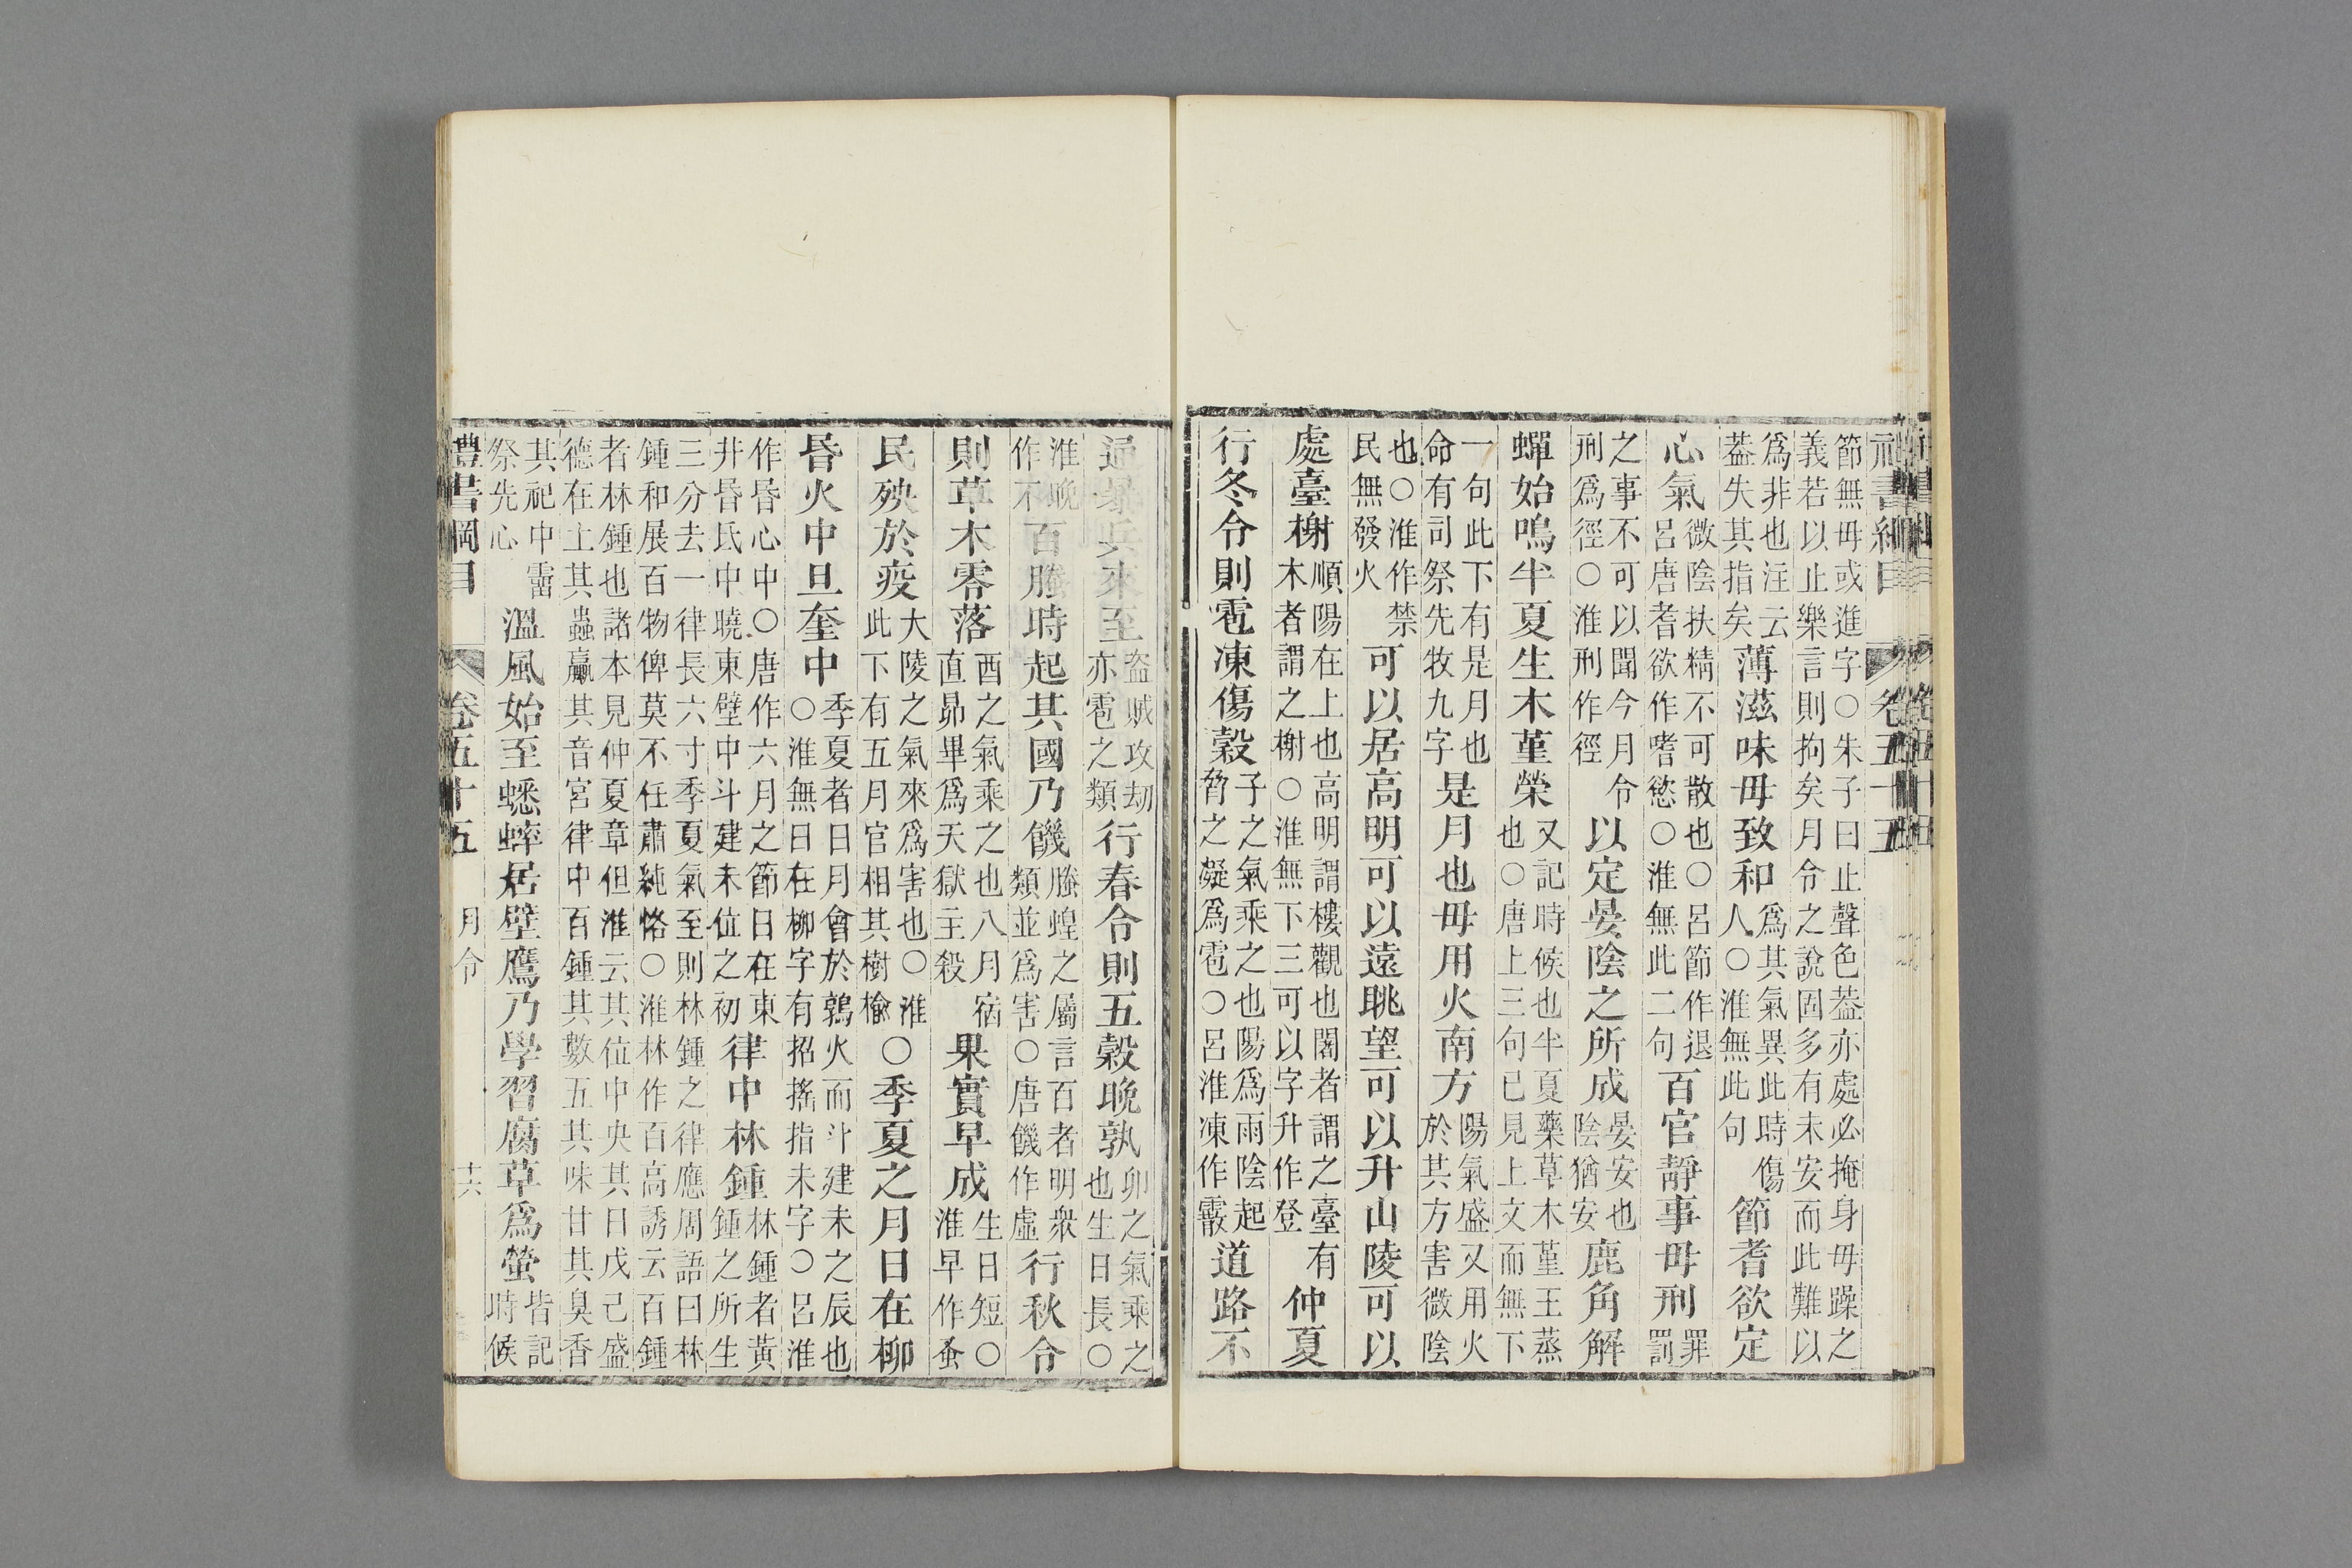 禮書綱目 卷五十五
節無毋或進字○朱子曰止聲色葢亦處必掩身毋躁之
義若以止樂言則拘矣月令之說固多有未安而此難以
爲非也注云
葢失其指矣
薄滋味毋致和
爲其氣異此時傷
人○淮無此句
節耆欲定
心氣
微陰扶精不可散也○呂節作退
呂唐耆欲作嗜慾○淮無此二句
百官靜事毋刑
罪罰
之事不可以聞今月令
刑爲徑○淮刑作徑
以定晏陰之所成
晏安也
陰猶安
鹿角解
蟬始鳴半夏生木堇榮
又記時候也半夏藥草木堇王蒸
也○唐上三句已見上文而無下
一句此下有是月也
命有司祭先牧九字
是月也毋用火南方
陽氣盛又用火
於其方害微陰
也○淮作禁
民無發火
可以居高明可以遠眺望可以升山陵可以
處臺榭
順陽在上也高明謂樓觀也闍者謂之臺有
木者謂之榭○淮無下三可以字升作登
仲夏
行冬令則雹凍傷穀
子之氣乘之也陽爲雨陰起
脅之凝爲雹○呂淮凍作霰
道路不
通暴兵來至
盜賊攻劫
亦雹之類
行春令則五穀晚孰
卯之氣乘之
也生日長○
淮晚
作不
百螣時起其國乃饑
螣蝗之屬言百者明衆
類並爲害○唐饑作虛
行秋令
則草木零落
酉之氣乘之也八月宿
直昴畢爲天獄主殺
果實早成
生日短○
淮早作蚤
民殃於疫
大陵之氣來爲害也○淮
此下有五月官相其樹榆
○季夏之月日在柳
昬火中旦奎中
季夏者日月會於鶉火而斗建未之辰也
○淮無日在柳字有招搖指未字○呂淮
作昬心中○唐作六月之節日在東
井昬氐中曉東壁中斗建未位之初
律中林鍾
林鍾者黃
鍾之所生
三分去一律長六寸季夏氣至則林鍾之律應周語曰林
鍾和展百物俾莫不任肅純恪○淮林作百高誘云百鍾
者林鍾也諸本見仲夏章但淮云其位中央其日戊己盛
德在土其蟲臝其音宮律中百鍾其數五其味甘其臭香
其祀中霤
祭先心
溫風始至蟋蟀居壁鷹乃學習腐草爲螢
皆記
時候
禮書綱目 卷五十五 月令 十六